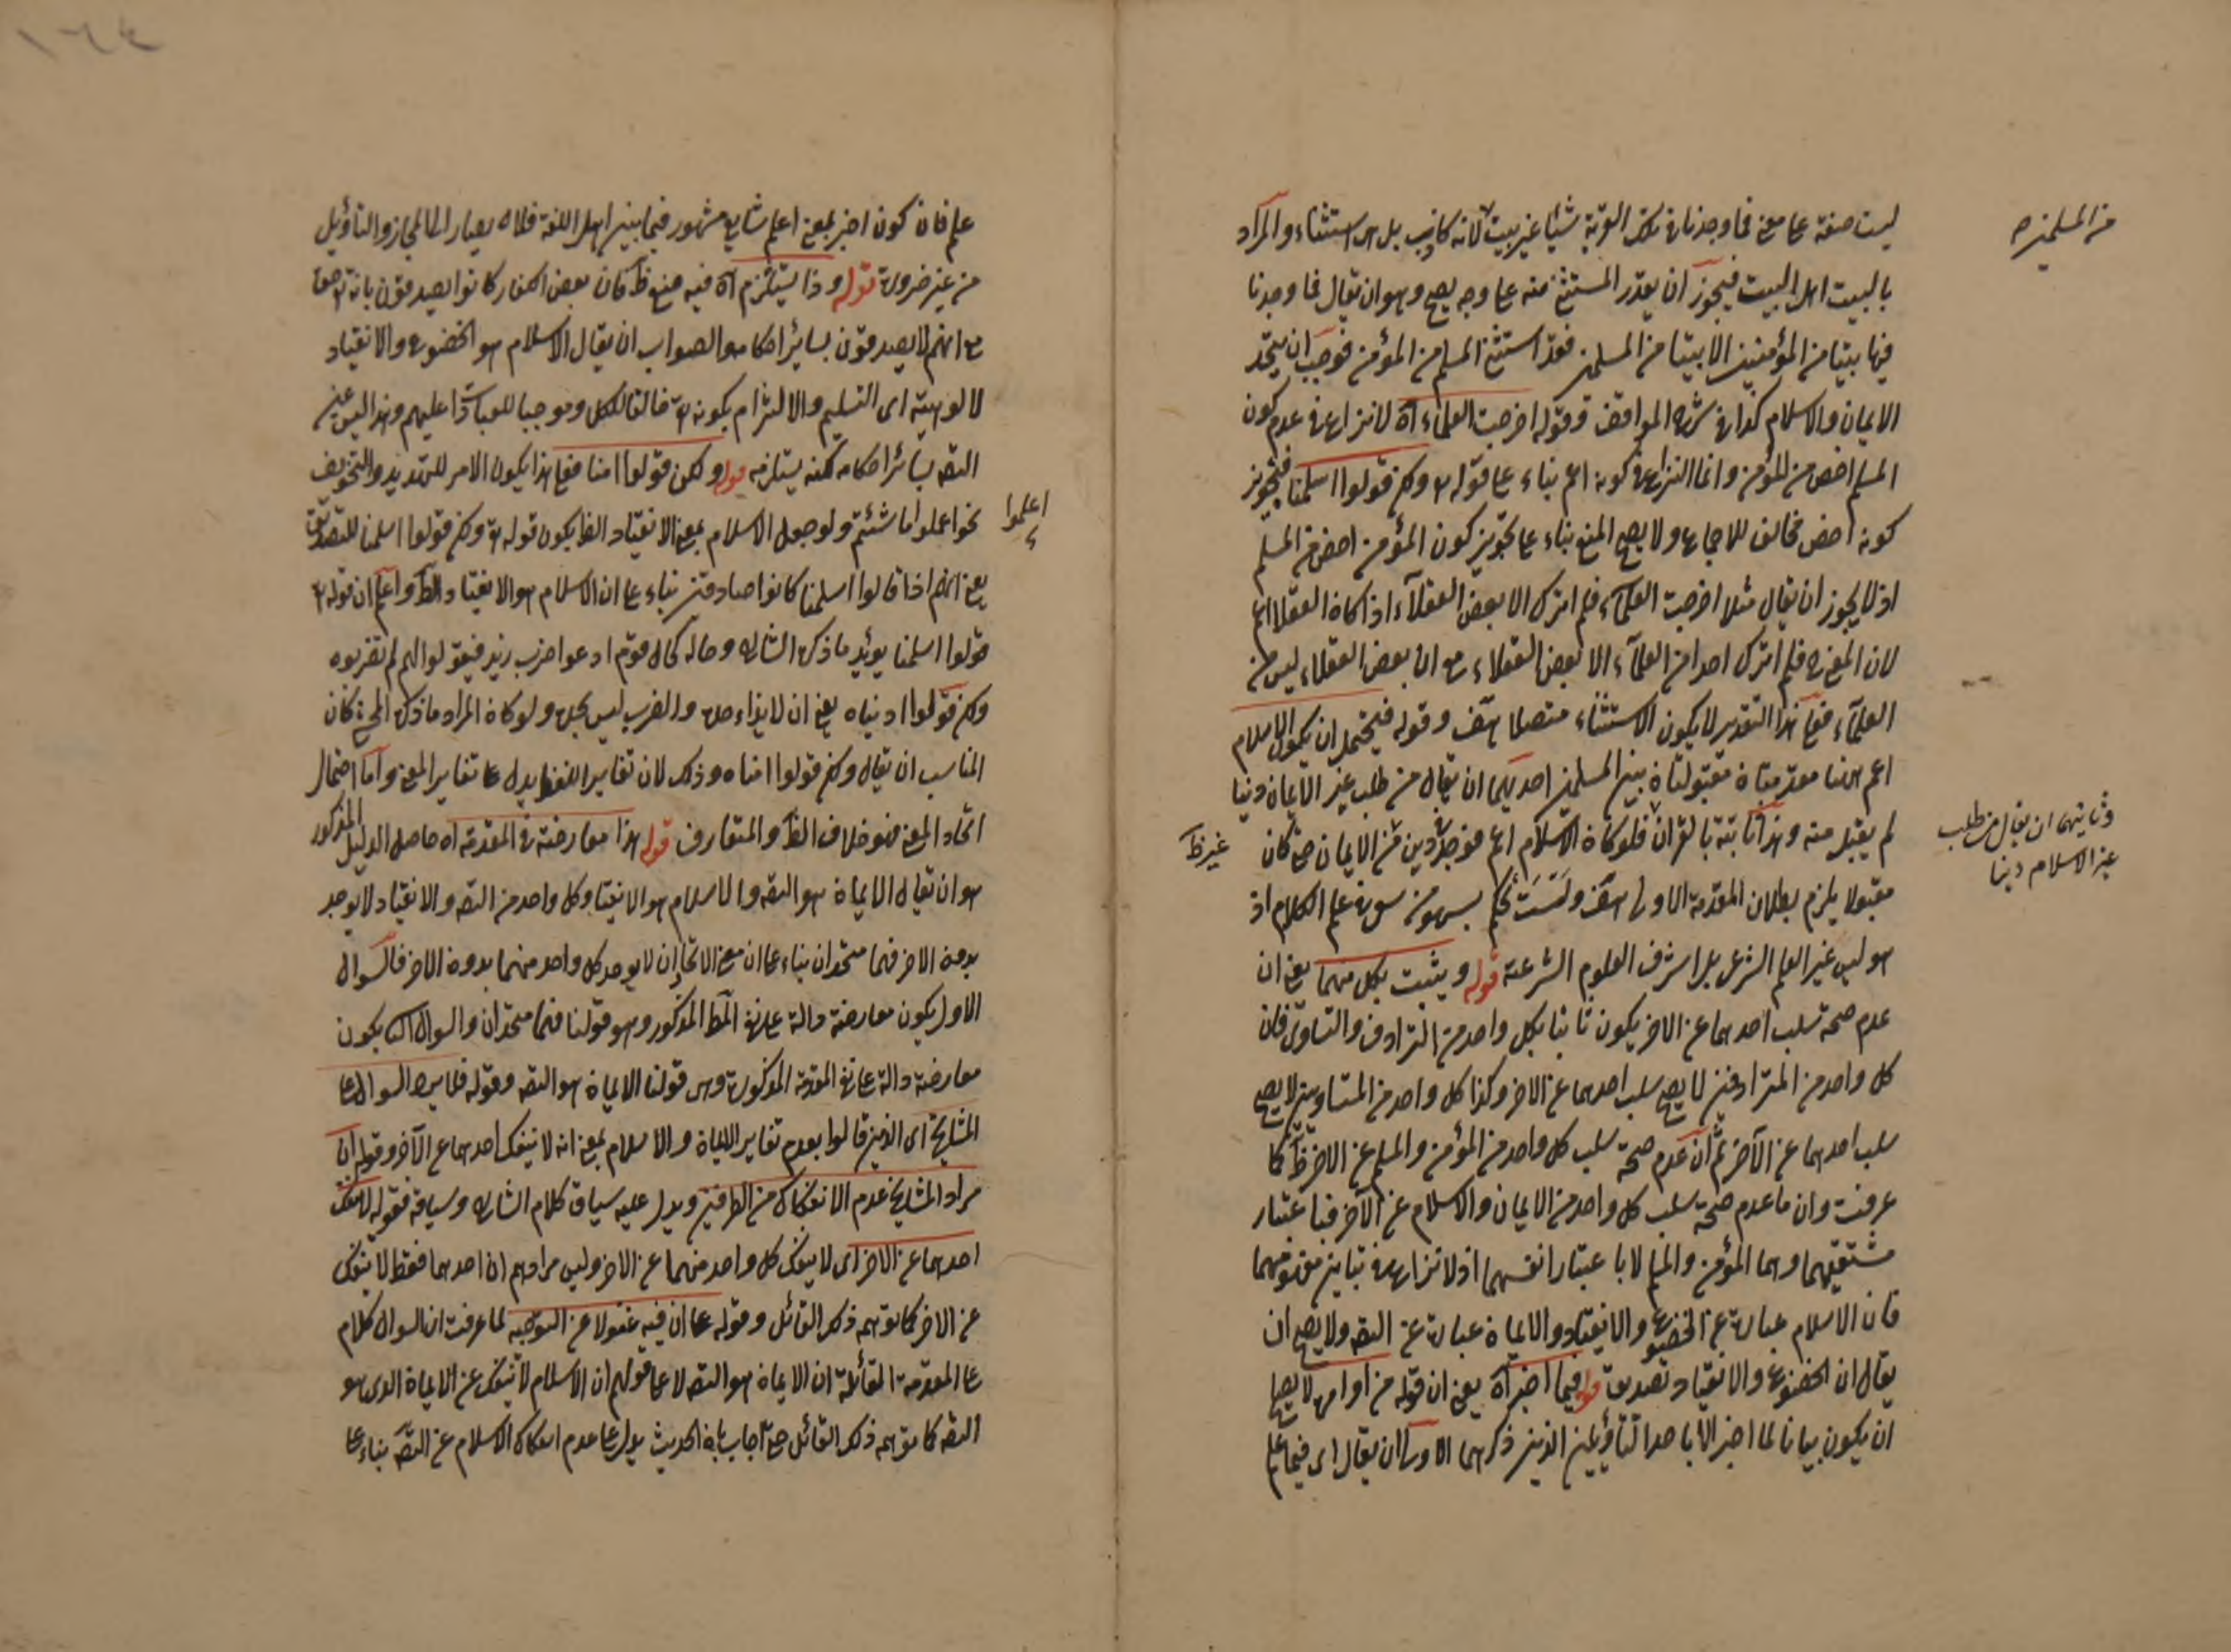 ليست صفة على معنى فما وجدنا في تلك القرية شيئا غير بيت لانه كاذب بل هى استثناء والمراد
بالبيت اهل البيت فيجوز ان يقدر المستثنى منه على وجه يصح وهو ان يقال فما وجدنا
فيها بيتا من المؤمنين الا بيتا من المسلمين فقد استثنى المسلم من المؤمن فوجب ان يتحد
الايمان والاسلام كذا في شرح المواقف وقوله اخرجت العلماء اه لا نزاع في عدم كون
المسلم اخص من المؤمن وانما النزاع في كونه اعم بناء على قوله تع ولكن قولوا اسلمنا فتجويز
كونه اخص مخالف للاجماع ولا يصح المنع بناء على تجويز كون المؤمن اخص من المسلم
اذ لا يجوز ان يقال مثلا اخرجت العلماء فلم اترك الا بعض العقلاء اذا كان العقلاء اعم
لان المعنى ح فلم اترك احدا من العلماء الا بعض العقلاء مع ان بعض العقلاء ليس من
العلماء فعلى هذا التقدير لا يكون الاستثناء متصلا هف وقوله فيحتمل ان يكون الاسلام
اعم ههنا مقدمتان مقبولتان بين المسلمين احديهما ان يقال من طلب غير الايمان دينا
لم يقبل منه وهذا ثابتة بالقران فلو كان الاسلام اعم فوجد دين من الايمان حتى كان
مقبولا يلزم بطلان المقدمة الاولى هف ولست تحكم بسهو من سوى علم الكلام اذ
هو ليس غير العلم الشرعى بل اشرف العلوم الشرعية قوله ويثبت بكل منهما يعنى ان
عدم صحة سلب احدهما عن الاخر يكون ثابتا بكل واحد من الترادف والتساوى فان
كل واحد من المترادفين لا يصح سلب احدهما عن الاخر وكذا كل واحد من المتساويين لا يصح
سلب احدهما عن الآخر ثم ان عدم صحة سلب كل واحد من المؤمن والمسلم عن الاخر ظ كما
عرفت وان ما عدم صحة سلب كل واحد من الايمان والاسلام عن الآخر فباعتبار
مشتقيهما وهما المؤمن والمسلم لا باعتبار انفسهما اذ لا نزاع في تباين مفهوميهما
فان الاسلام عبارة عن الخضوع والانقياد والايمان عبارة عن التصد ولا يصح ان
يقال ان الخضوع والانقياد تصديق قوله فيما اخبر اه يعنى ان قوله من اوامره لا يصح
ان يكون بيانا لما اخبر الا باحد التأويلين الذين ذكرهما الاول ان يقال اى فيما علم
من المسلمين صح
وثانيتهما ان يقال من طلب
غير الاسلام دينا
غير ظ
١٦٤
علم فان كون اخبر بمعنى اعلم شايع مشهور فيما بين اهل اللغة فلا يصار الى المجاز والتأويل
من غير ضرورة قوله وذا يستلزم اه فيه منع ظ فان بعض الكفار كانوا يصدقون بانه تع حق
مع انهم لا يصدقون بسائر احكامه والصواب ان يقال الاسلام هو الخضوع والانقياد
لالوهيته اى التسليم والالتزام بكونه تع خالقا للكل وموجبا للعبادة عليهم وهذا ليس عين
التصد بسائر احكامه لكنه يستلزمه قوله ولكن قولوا امنا فعلى هذا يكون الامر للتهديد والتخويف
نحو اعملوا ما شئتم ولو جعل الاسلام بمعنى الانقياد الظ يكون قوله تع ولكن قولوا اسلمنا للتصديق
يعنى انهم اذا قالوا اسلمنا كانوا صادقين بناء على ان الاسلام هو الانقياد الظ واعلم ان قوله تع
قولوا اسلمنا يؤيد ما ذكره الشارح وحاله كحال قوم ادعوا ضرب زيد فيقولوا لهم لم تضربوه
ولكن قولوا اذيناه يعنى ان الايذاء حصل والضرب ليس بحاصل ولو كان المراد ما ذكره المحشى كان
المناسب ان يقال ولكن قولوا امناه وذلك لان تغاير اللفظ يدل على تغاير المعنى واما احتمال
اتحاد المعنى فهو خلاف الظ والمتعارف قوله هذا معارضة في المقدمة اه حاصل الدليل المذكور
هو ان يقال الايمان هو التصد والاسلام هو الانقياد وكل واحد من التصد والانقياد لا يوجد
بدون الاخر فهما متحدان بناء على ان معنى الاتحاد ان لا يوجد كل واحد منهما بدون الاخر فالسوال
الاول يكون معارضة دالة على نفى المط المذكور وهو قولنا فهما متحدان والسوال الثا يكون
معارضة دالة على نفى المقدمة المذكورة وهى قولنا الايمان هو التصد وقوله فلا يرد السوال على
المشايخ اى الذين قالوا بعدم تغاير الايمان والاسلام بمعنى انه لا ينفك احدهما عن الآخر وقوله ان
مراد المشايخ عدم الانفكاك من الطرفين ويدل عليه سياق كلام الشارح وسياقه فقوله لا ينفك
احدهما عن الاخر اى لا ينفك كل واحد منهما عن الاخر وليس مرادهم ان احدهما فقط لا ينفك
عن الاخر كما توهمه ذلك القائل وقوله على ان فيه غفولا عن التوجيه لما عرفت ان السوال كلام
على المقدمة القائلة ان الايمان هو التصد لا على قولهم ان الاسلام لا ينفك عن الايمان الذى هو
التصد كما توهمه ذلك القائل حتى اجاب بان الحديث يدل على عدم انفكاك الاسلام عن التصد بناء على
اعلموا